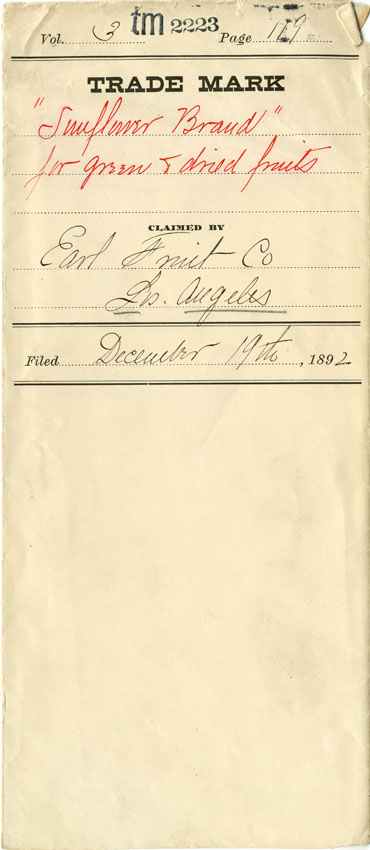 Vol. 3 tm 2223 Page 119
TRADE MARK
"Sunflower Brand"
for green & dried fruits
CLAIMED BY
Earl Fruit Co
Los. Angeles
Filed December 19th, 1892